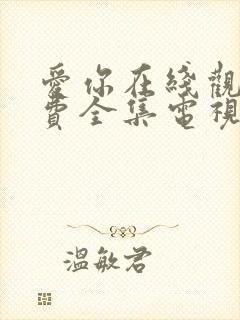 愛你在綫觀
費全集電視
溫敏君